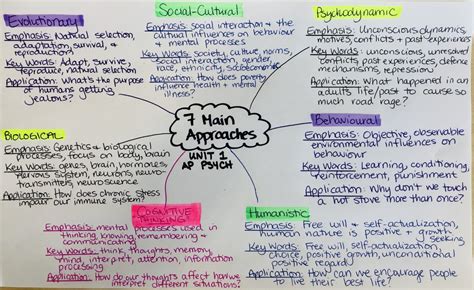 Evolutionary
Emphasis: Natural selection,
adaptation, survival, &
reproduction
Key Words: Adapt, survive,
reproduce, natural selection
Application: What's the purpose
of humans getting
jealous?
Social-Cultural
Emphasis: social interaction & the
cultural influences on behaviour
& mental processes
Key Words: society, culture, norms,
social interaction, gender,
race, ethnicity, socioeconomic
Application: How does poverty
influence health & mental
illness?
Psychodynamic
Emphasis: Unconscious dynamics,
motives, conflicts & past experiences
Key Words: unconscious, unresolved
conflicts, past experiences, defense
mechanisms, repression
Application: What happened in an
adults life/past to cause so
much road rage?
7 Main
Approaches
UNIT 1
AP PSYCH
BIOLOGICAL
Emphasis: Genetics & biological
processes, focus on body, brain
Key Words: genes, brain, hormones,
nervous system, neurons, neuro-
transmitters, neuroscience
Application: How does chronic stress
impair our immune system?
Behavioural
Emphasis: Objective, observable
environmental influences on
behaviour
Key Words: Learning, conditioning,
reinforcement, punishment
Application: Why don't we touch
a hot stove more than once?
COGNITIVE
THINKING
Emphasis: mental processes used in
thinking, knowing, remembering &
communicating
Key Words: think, thoughts, memory,
mind, interpret, attention, information
processing
Application: How do our thoughts affect how we
interpret different situations?
Humanistic
Emphasis: Free will & self-actualization,
human nature is positive & growth
seeking
Key Words: Free will, self-actualization,
choice, positive growth, unconditional
positive regard
Application: How can we encourage people
to live their best life?